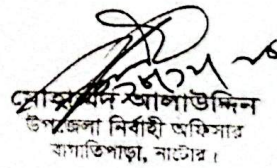 মোহাম্মদ আলাউদ্দিন
উপজেলা নির্বাহী অফিসার
বাগাতিপাড়া, নাটোর।